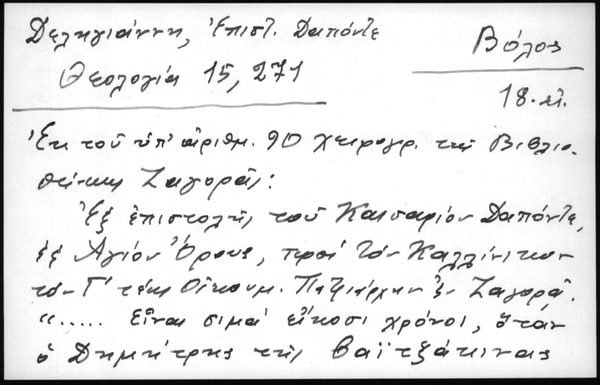 Δεληγιάννη, Ἐπιστ. Δαπόντε
Θεολογία 15, 271
Βόλος
18. αἰ.
Ἐκ τοῦ ὑπ' ἀριθμ. 90 χειρογρ. τῆς Βιβλιο-
θήκης Ζαγορᾶς:
Ἐξ ἐπιστολῆς τοῦ Καισαρίου Δαπόντε,
ἐξ Ἁγίου Ὄρους, πρὸς τὸν Καλλίνικον
τὸν Γ' τέως Οἰκουμ. Πατριάρχην ἐν Ζαγορᾷ.
"..... εἶναι σιμὰ εἴκοσι χρόνοι, ὅταν
ὁ Δημήτρης τῆς Βαϊτζάκινας